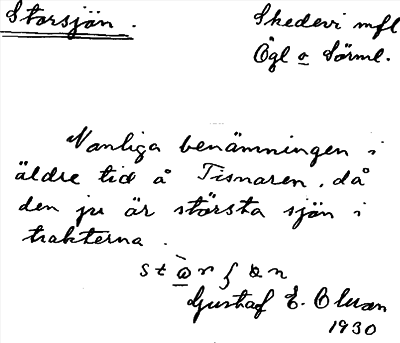 Storsjön.
Skedevi mfl
Ögl o Sörml.
Vanliga benämningen i
äldre tid å Tisnaren, då
den ju är största sjön i
trakterna.
Gustaf E.
1930